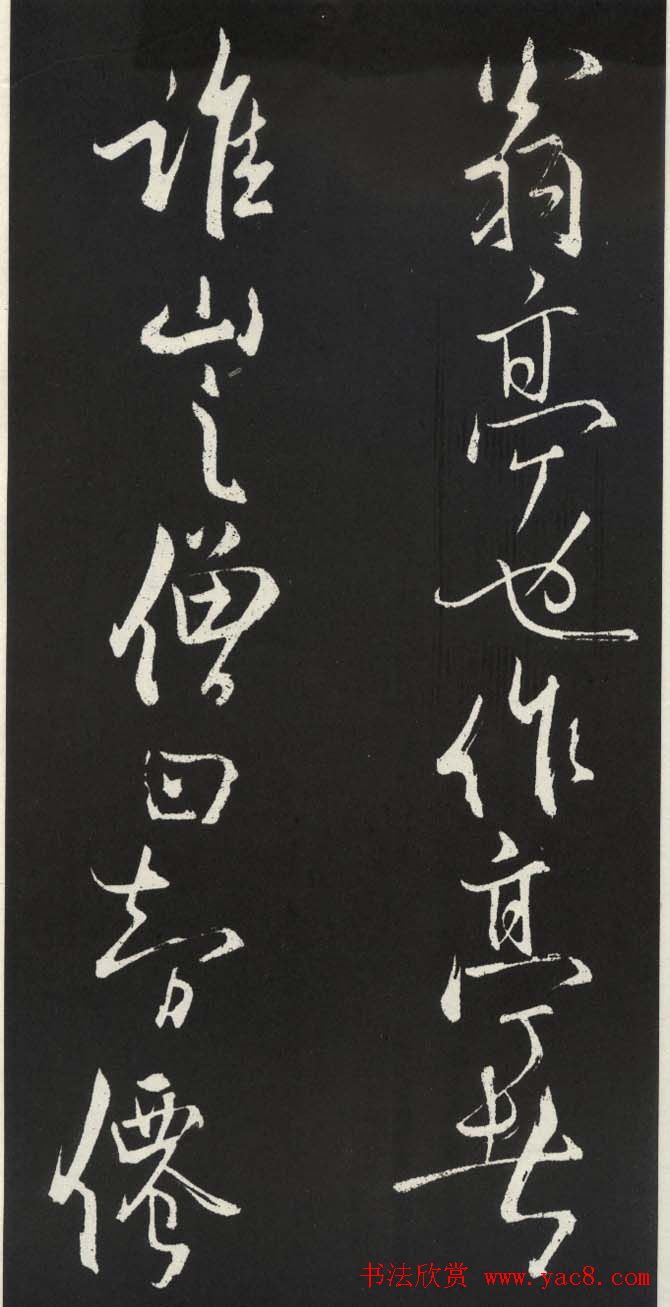 翁亭也作亭者
誰山之僧曰智僊
书法欣赏 www.yac8.com